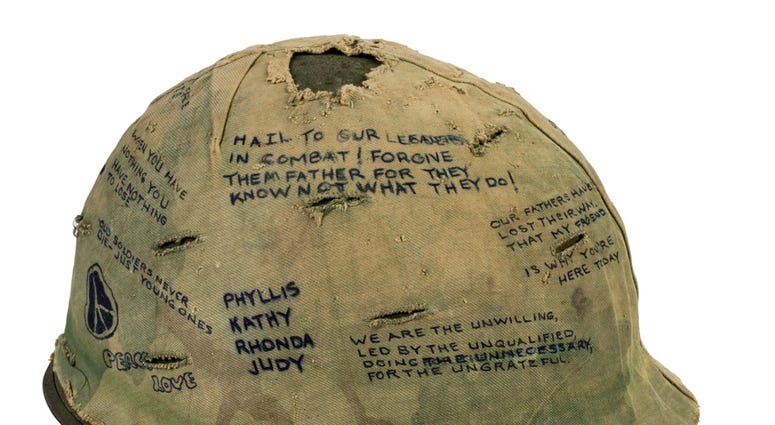 HAIL TO OUR LEADERS
IN COMBAT! FORGIVE
THEM FATHER FOR THEY
KNOW NOT WHAT THEY DO!
WHEN YOU HAVE
NOTHING YOU
HAVE NOTHING
TO LOSE
OLD SOLDIERS NEVER
DIE - JUST YOUNG ONES
PEACE
LOVE
PHYLLIS
KATHY
RHONDA
JUDY
OUR FATHERS HAVE
LOST THEIR WAY,
THAT MY FRIEND
IS WHY YOU'RE
HERE TODAY
WE ARE THE UNWILLING,
LED BY THE UNQUALIFIED,
DOING THE UNNECESSARY,
FOR THE UNGRATEFUL.